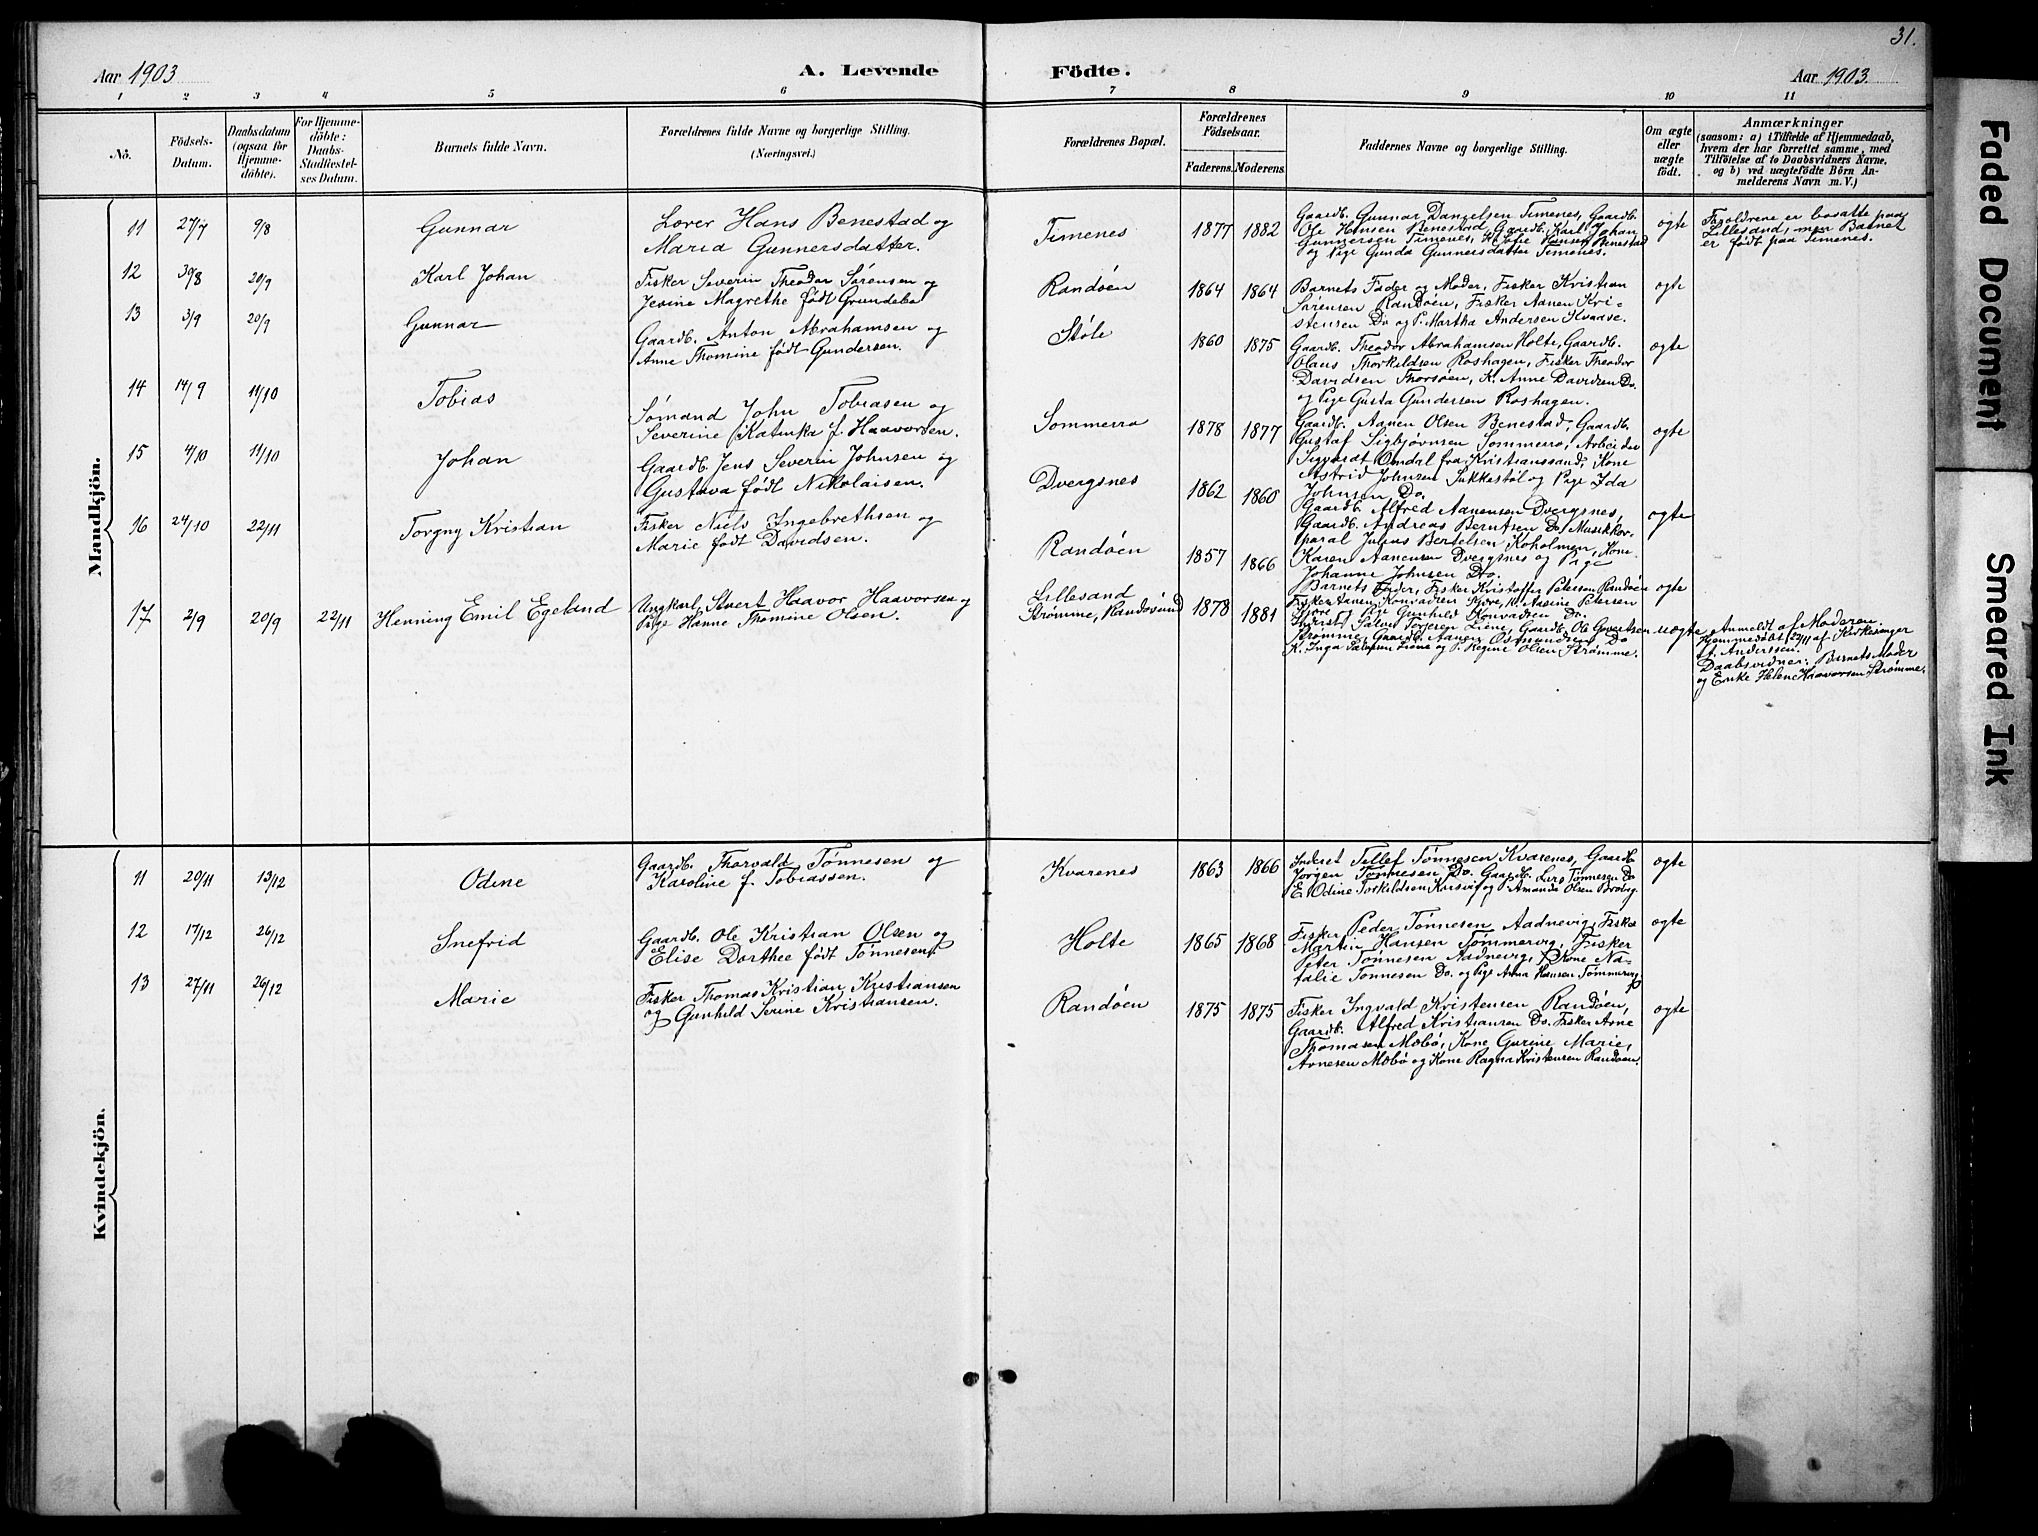 31.
Aar 1903
A. Levende
Födte.
Aar 1903.
1 2 3 4 5 6 7 8 9 10 11
No.
Födsels-
Datum.
Daabsdatum
(ogsaa for
Hjemme-
döbte).
For Hjemme-
döbte:
Daabs-
Stadfæstel-
ses Datum.
Barnets fulde Navn.
Forældrenes fulde Navne og borgerlige Stilling.
(Næringsvei.)
Forældrenes Bopæl.
Forældrenes
Födselsaar.
Faderens.
Moderens.
Faddernes Navne og borgerlige Stilling.
Om ægte
eller
uægte
födt.
Anmærkninger
(saasom: a) i Tilfælde af Hjemmedaab,
hvem der har forrettet samme, med
Tilföielse af to Daabsvidners Navne,
og b) ved uægtefödte Börn An-
melderens Navn m. V.)
Mandkjön.
11 27/7 9/8 Gunnar
Lærer Hans Benestad og
Maria Gunnersdatter.
Timenes 1877 1882
Gaardb. Gunnar Danielsen Timenes, Gaardb.
Ole Hansen Benestad, Gaardb. Karl Johan
Gunnersen Timenes, K. Sofie Hansen Benestad
og Pige Gunda Gunnersdatter Timenes.
ægte
Forældrene er bosatte paa
Lillesand, men Barnet
er født paa Timenes.
12 30/8 20/9 Karl Johan
Fisker Severin Theodor Sørensen og
Jesine Magrethe født Grundebo
Randøen 1864 1864
Barnets Fader og Moder, Fisker Kristian
Sørensen Randøen, Fisker Aanen Kri-
stensen Do og P. Martha Andersen Kvaase.
ægte
13 3/9 20/9 Gunnar
Gaardb. Anton Abrahamsen og
Anne Thomine født Gundersen.
Støle 1860 1875
Gaardb. Theodor Abrahamsen Holte, Gaardb.
Olaus Thorkildsen Roshagen, Fisker Theodor
Davidsen Thorsøen, K. Anne Davidsen Do.
og Pige Gusta Gundersen Roshagen.
ægte
14 14/9 11/10 Tobias
Sømand John Tobiasen og
Severine Katinka f. Haavorsen.
Sommerro 1878 1877
Gaardb. Aanen Olsen Benestad, Gaardb.
Gustaf Sigbjørnsen Sommerro, Arbeider
Sigvardt Omdal fra Kristianssand, Kone
Astrid Johnsen Sukkestøl og Pige Ida
Johnsen Do.
ægte
15 4/10 11/10 Johan
Gaardb. Jens Severin Johnsen og
Gustava født Nikolaisen.
Dvergsnes 1862 1860
Gaardb. Alfred Aanensen Dvergsnes,
Gaardb. Andreas Berntsen Do, Musikkor-
poral Julius Bertelsen Koholmen, Kone
Karen Aanensen Dvergsnes og Pige
Johanne Johnsen Do.
ægte
16 24/10 22/11 Torgny Kristian
Fisker Niels Ingebrethsen og
Marie født Davidsen.
Randøen 1857 1866
Barnets Fader, Fisker Kristoffer Petersen Randøen
Fisker Aanen Konradsen Kjøre, K. Aasine Petersen
Kjøre og Pige Gunhild Konradsen Do.
ægte
17 2/9 20/9 22/11 Henning Emil Egeland
Ungkarl Stuert Haavor Haavorsen og
Pige Hanne Thomine Olsen.
Lillesand
Strømme, Randøsund 1878 1881
Inderst Salve Torjersen Liene, Gaardb. Ole Govertsen
Strømme, Gaardb. Aanen Osmundsen Do
K. Inga Salvesen Liene og P. Regine Olsen Strømme.
uægte
Anmeldt af Moderen.
Hjemmedøbt 20/9 af Kirkesanger
A. Andersen.
Daabsvidner: Barnets Moder
og Enke Helene Haavorsen Strømme.
Kvindekjön.
11 20/11 13/12 Odine
Gaardb. Thorvald Tønnesen og
Karoline f. Tobiassen.
Kvarenes 1863 1866
Inderst Tellef Tønnesen Kvarenes, Gaardb.
Jørgen Tønnesen Do. Gaardb. Lars Tønnesen Do
E. Odine Torkildsen Kusvig og P. Amanda Olsen Brovig.
ægte
12 17/12 26/12 Snefrid
Gaardb. Ole Kristian Olsen og
Elise Dorthee født Tønnesen.
Holte 1865 1868
Fisker Peder Tønnesen Aadnevig, Fisker
Martin Hansen Tømmervig, Fisker
Peter Tønnesen Aadnevig, Kone Na-
talie Tønnesen Do. og Pige Anna Hansen Tømmervig
ægte
13 27/11 26/12 Marie
Fisker Thomas Kristian Kristiansen
og Gunhild Serine Kristiansen.
Randøen 1875 1875
Fisker Ingvald Kristensen Randøen,
Gaardb. Alfred Kristiansen Do. Fisker Arne
Thomasen Mæbø, Kone Gurine Marie
Arnesen Mæbø og Kone Ragna Kristensen Randøen.
ægte
Faded Document
Smeared Ink